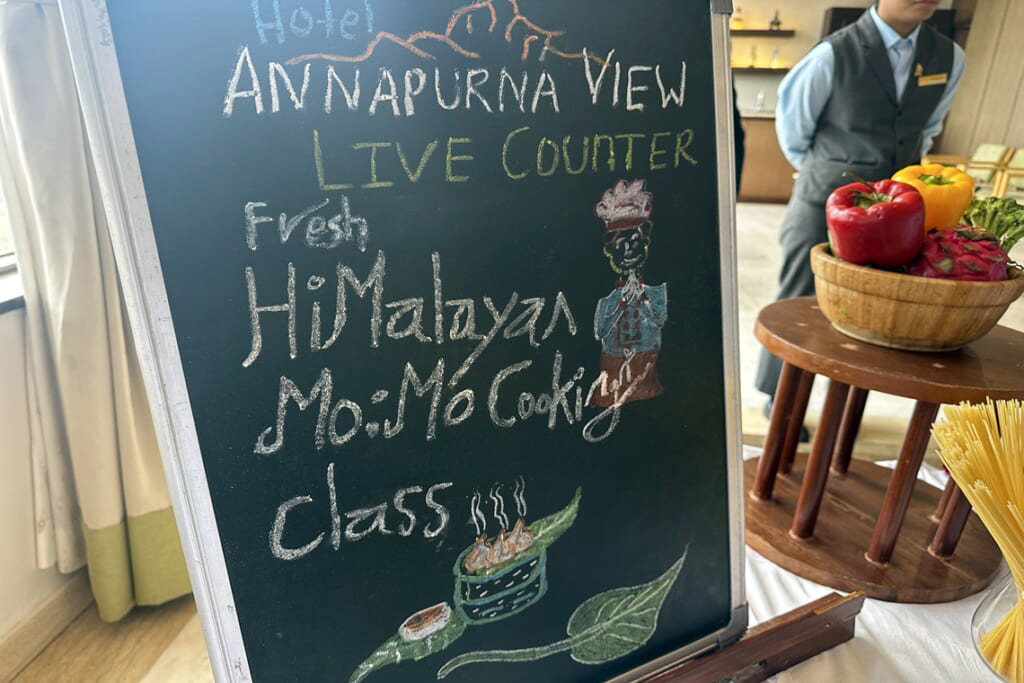 Hotel
ANNAPURNA VIEW
LIVE COUNTER
Fresh
HiMalayan
Mo:Mo Cooking
Class